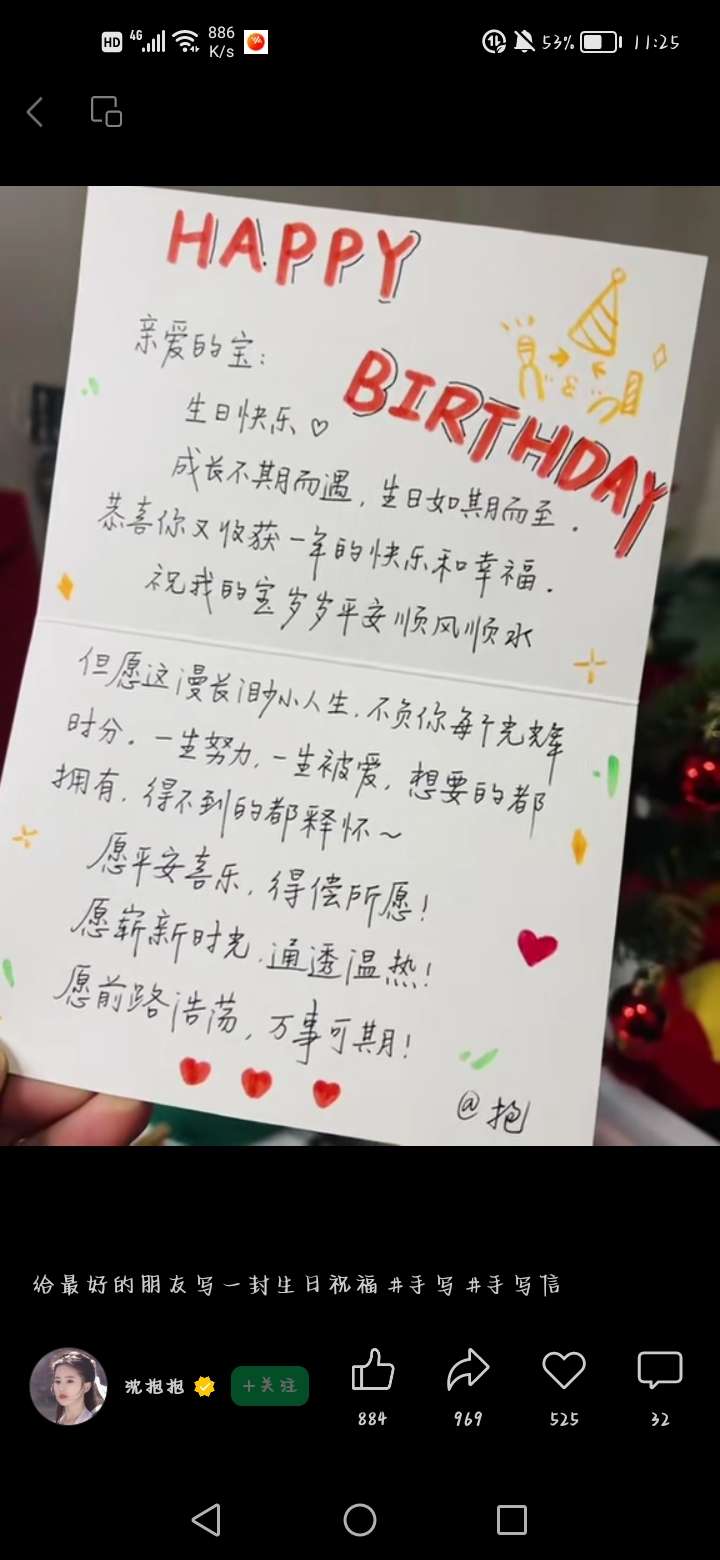 HD 4G 886 K/s 53% 11:25
HAPPY
BIRTHDAY
亲爱的宝：
生日快乐♡
成长不期而遇，生日如期而至．
恭喜你又收获一年的快乐和幸福．
祝我的宝岁岁平安顺风顺水
但愿这漫长渺小人生，不负你每个光辉
时分。一生努力，一生被爱，想要的都
拥有，得不到的都释怀～
愿平安喜乐，得偿所愿！
愿崭新时光，通透温热！
愿前路浩荡，万事可期！
@抱
给最好的朋友写一封生日祝福 #手写 #手写信
沈抱抱
+关注
884
969
525
32